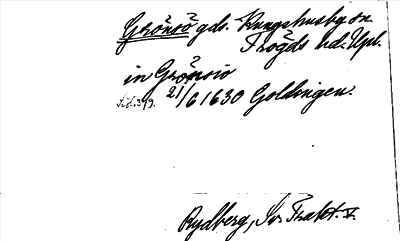 Grönsö gds. Kungshusby sn.
Trögds hd. Upl.
in Grönsiö
Sid. 379. 21/6 1630 Goldingen.
Rydberg, Sv. Trakt. V.